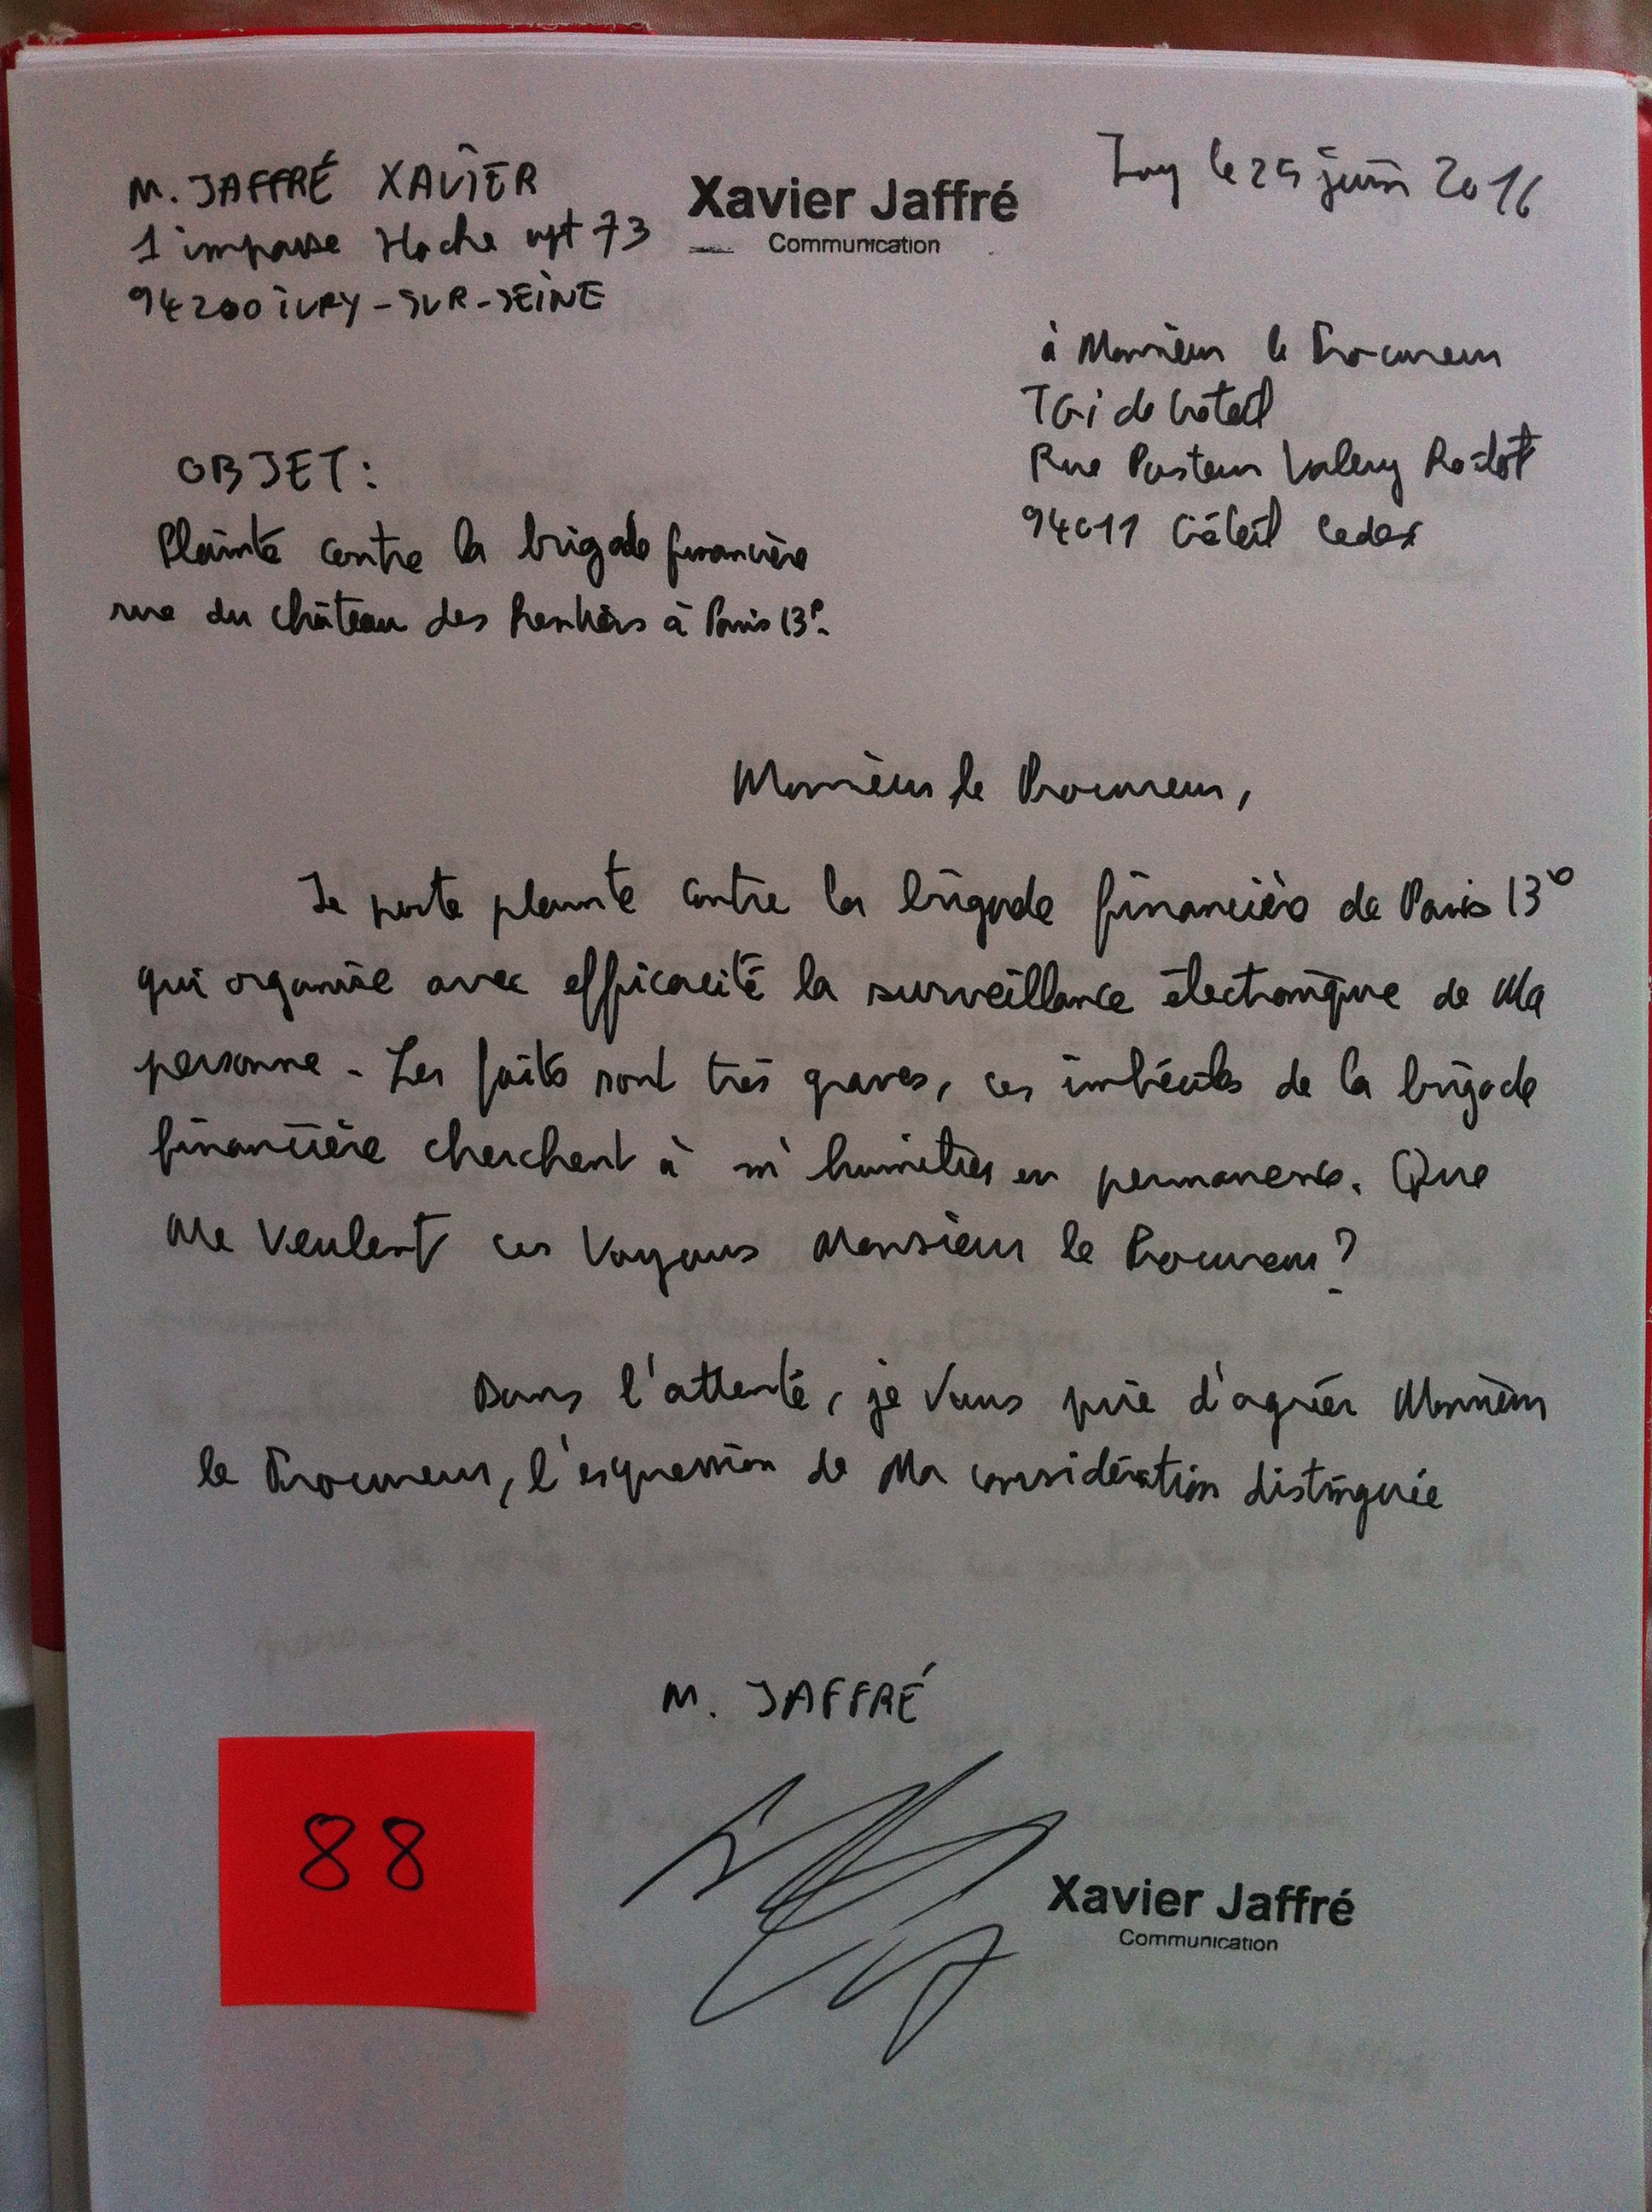 M. JAFFRÉ XAVIER
1 impasse Hoche apt 73
94200 IVRY-SUR-SEINE
Xavier Jaffré
Communication
Ivry le 25 juin 2016
à Monsieur le Procureur
TGI de Créteil
Rue Pasteur Valery Radot
94011 Créteil Cedex
OBJET:
Plainte contre la brigade financière
rue du château des Rentiers à Paris 13e.
Monsieur le Procureur,
Je porte plainte contre la brigade financière de Paris 13e
qui organise avec efficacité la surveillance électronique de Ma
personne. Les faits sont très graves, ces imbéciles de la brigade
financière cherchent à m'humilier en permanence. Que
Me Veulent ces Voyous Monsieur le Procureur?
Dans l'attente, je Vous prie d'agréer Monsieur
le Procureur, l'expression de Ma considération distinguée
M. JAFFRÉ
88
Xavier Jaffré
Communication